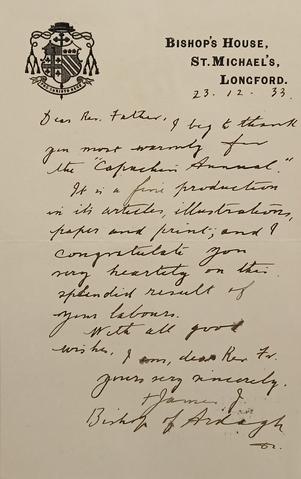 BISHOP'S HOUSE,
ST. MICHAEL'S,
LONGFORD.
23. 12. 33.
Dear Rev. Father,
I beg to thank
you most warmly for
the "Capuchin Annual."
It is a fine production
in its articles, illustrations,
paper and print; and I
congratulate you
very heartily on this
splendid result of
your labours.
With all good
wishes, I am, dear Rev. Fr.
yours very sincerely,
+James J.
Bishop of Ardagh